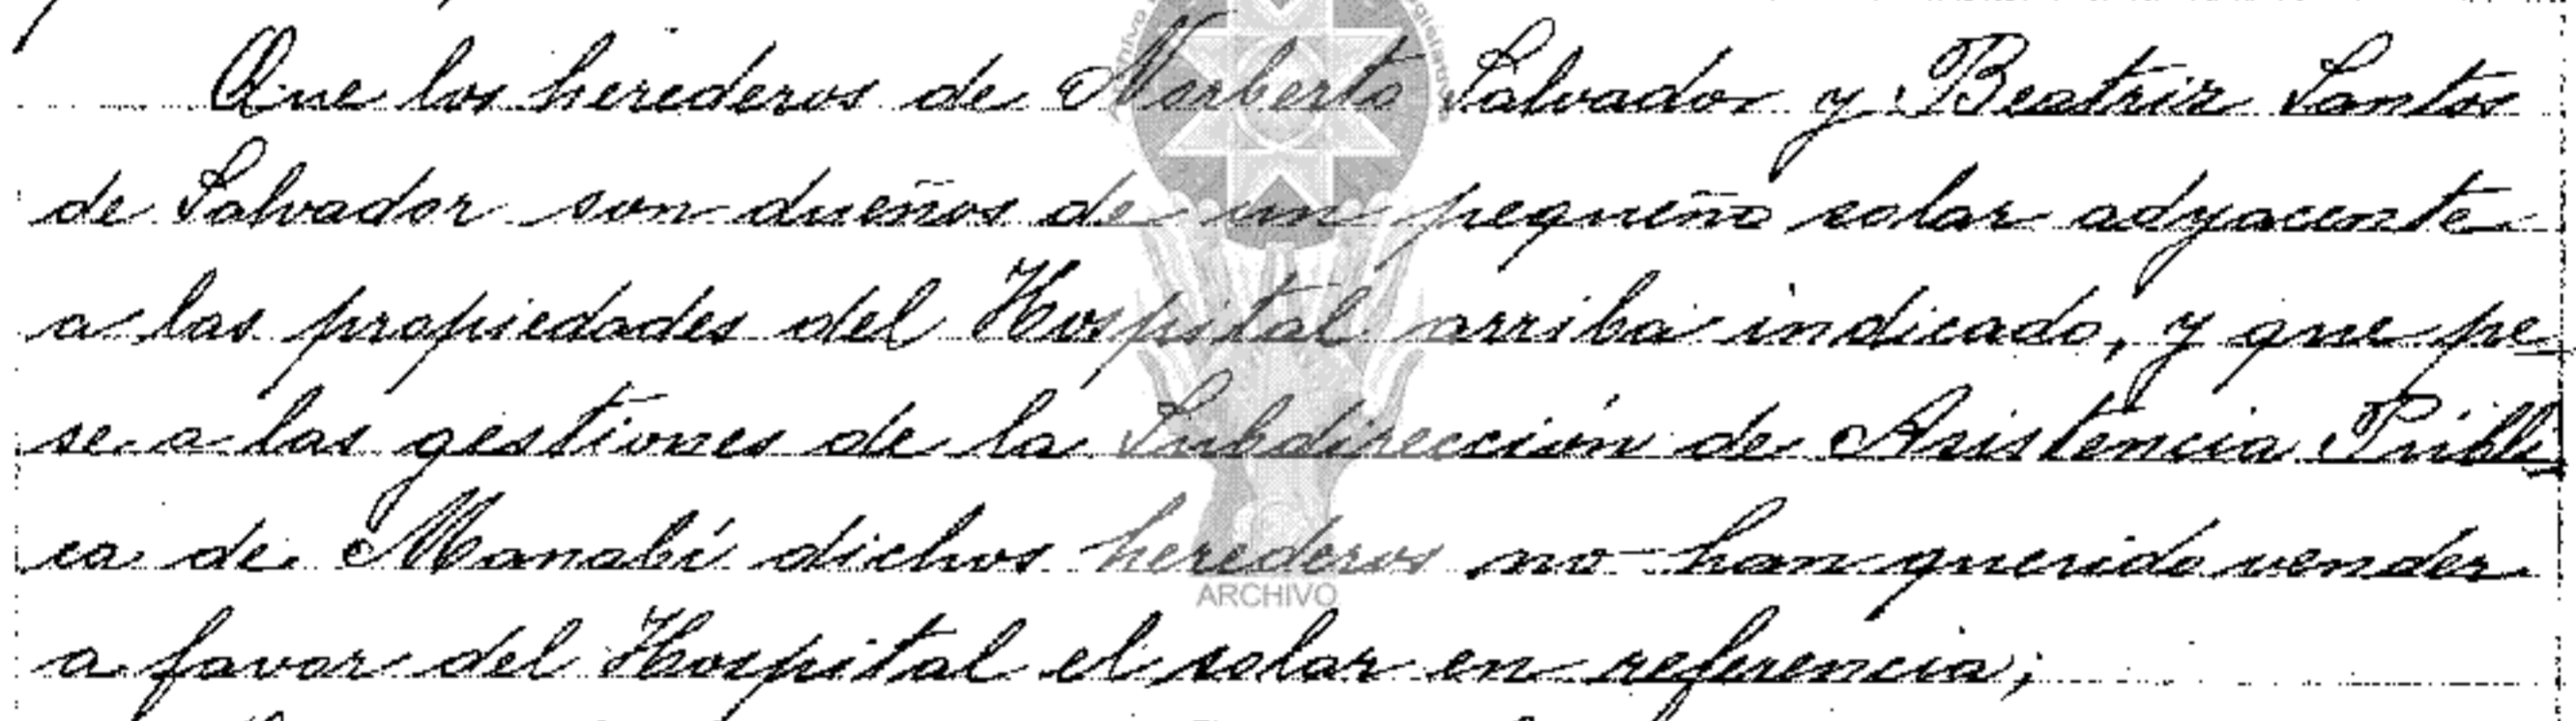 Que los herederos de Norberto Salvador y Beatriz Santos
de Salvador son dueños de un pequeño solar adyacente
a las propiedades del Hospital arriba indicado, y que pe-
se a las gestiones de la Subdirección de Asistencia Públi-
ca de Manabí dichos herederos no han querido vender
ARCHIVO
a favor del Hospital el solar en referencia;